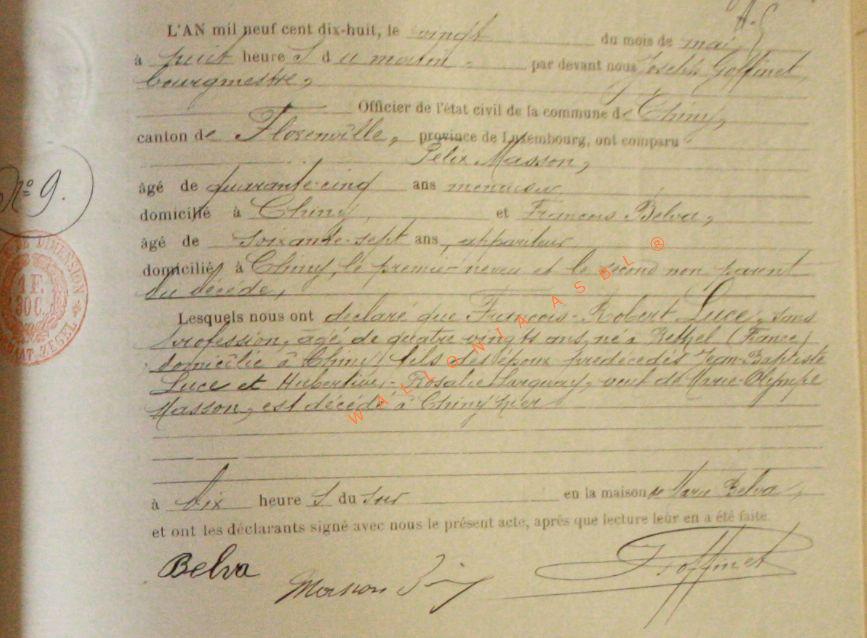 L'AN mil neuf cent dix-huit, le vingt du mois de mai,
à huit heure s du matin, par devant nous Joseph Goffinet,
bourgmestre,
Officier de l'état civil de la commune de Chiny,
canton de Florenville, province de Luxembourg, ont comparu
Félix Masson,
âgé de quarante-cinq ans menuisier
domicilié à Chiny, et François Belva,
âgé de soixante-sept ans, appariteur
domiciliés à Chiny, le premier neveu et le second non parent
du décédé,
Lesquels nous ont déclaré que François-Robert Luce, sans
profession, âgé de quatre vingts ans, né à Rethel (France)
domicilié à Chiny, fils des époux prédécédés Jean-Baptiste
Luce et Rosalie, veuf de Marie-Olympe
Masson, est décédé à Chiny hier
à dix heure s du soir en la maison de Marie Belva,
et ont les déclarants signé avec nous le présent acte, après que lecture leur en a été faite.
Belva Masson Goffinet
N° 9.
DIMENSION
1 F.
30 C.
ZEGEL
WALLONIA ASBL ®